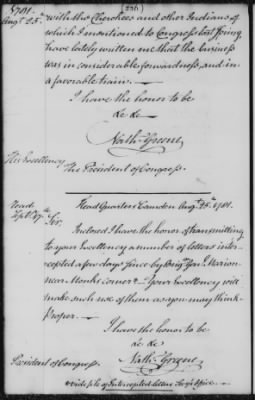 1781.
Augt. 25th.
236
with the Cherokees and other Indians of
which I mentioned to Congress last Spring
have lately written me that the business
was in considerable forwardness, and in
a favorable train. —
I have the honor to be
&c &c
Nath. Greene
His Excellency
The President of Congress.
Head Quarters Camden Augt. 25th 1781.
read
Sept. 17th
Sir,
Inclosed I have the honor of transmitting
to your Excellency a number of letters inter-
cepted a few days since by Brigr. Genl. Marion
near Monks corner. — Your Excellency will
make such use of them as you may think
Proper. —
I have the honor to be
&c &c
Nath. Greene
President of Congress
vide file of Intercepted letters Secy's Office. —